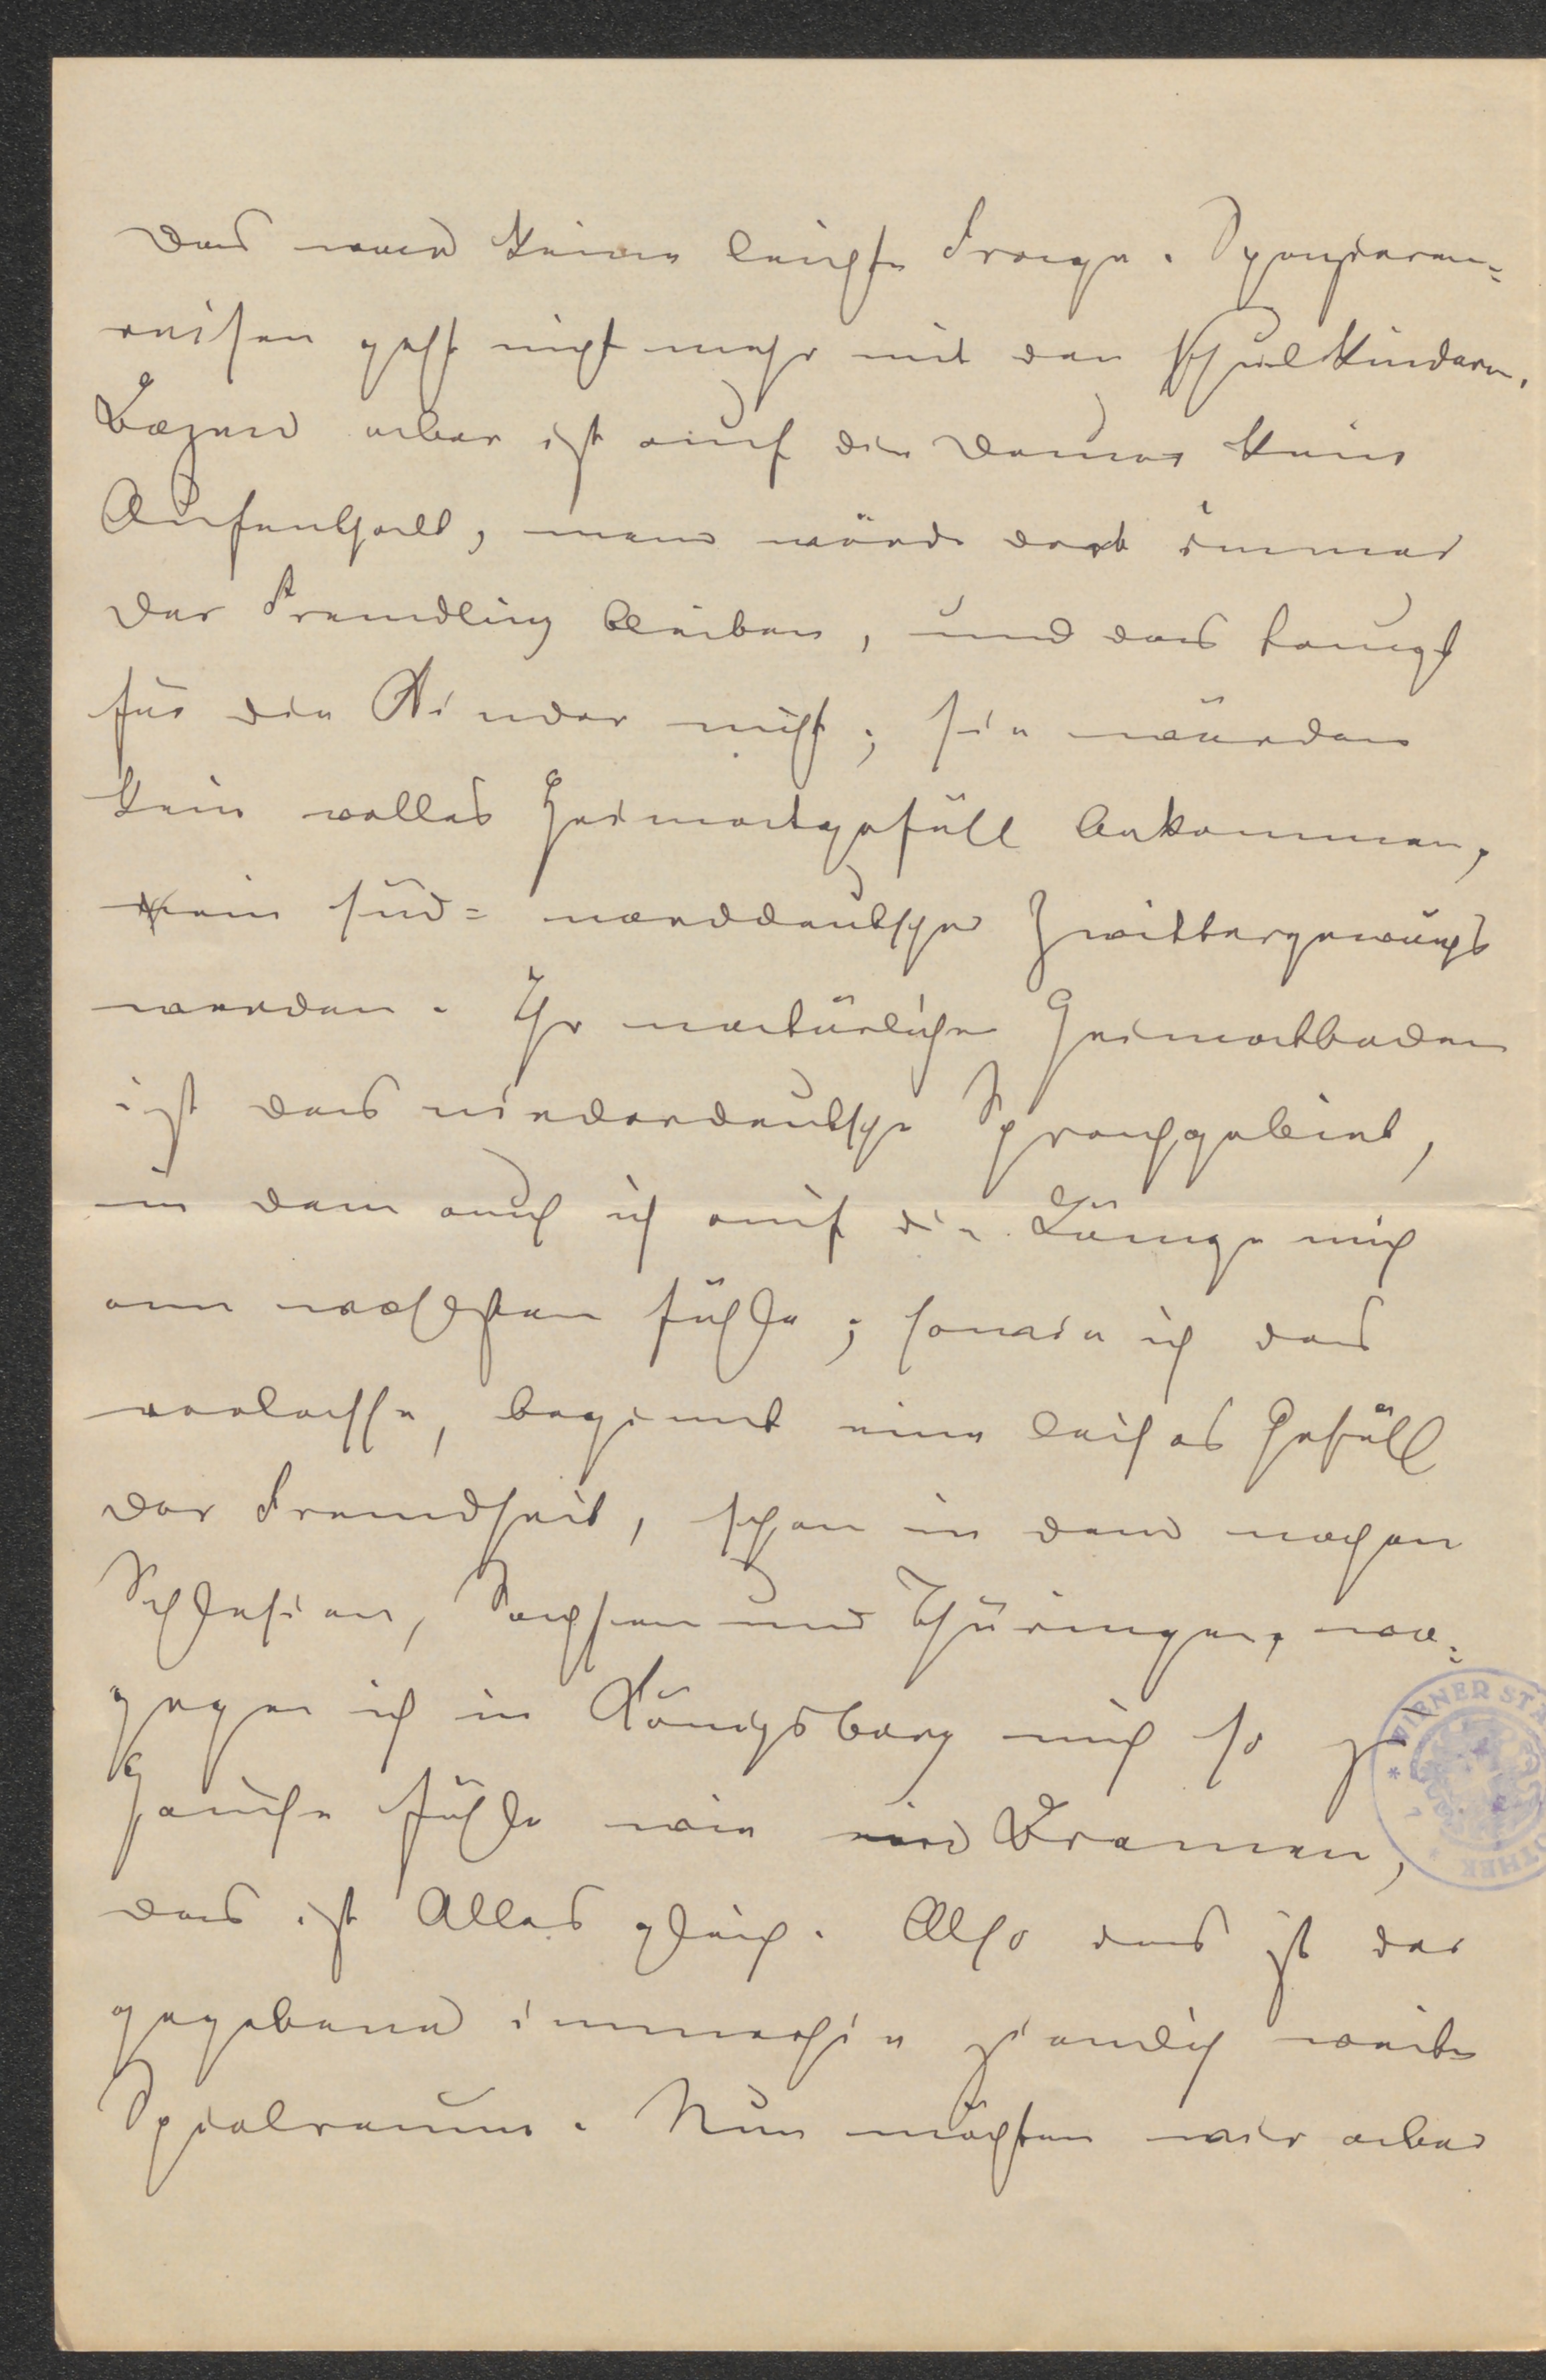 Das war keine leichte Frage. Spazieren=
reisen geht nicht mehr mit den Schulkindern.
Bozen aber ist auf die Dauer kein
Aufenthalt, man würde dort immer
der Fremdling bleiben, und das taugt
für die Kinder nicht; sie würden
kein volles Heimatgefühl bekommen,
ein süd= norddeutscher Zwittergewächs
werden. Ihr natürlicher Heimatboden
ist das niederdeutsche Sprachgebiet,
in dem auch ich auf die Länge mich
am wohlsten fühle; sowie ich das
verlasse, beginnt ein leises Gefühl
der Fremdheit, schon in dem nahen
Schlesien, Sachsen und Thüringen, wo=
gegen ich in Königsberg mich so zu
Hause fühle wie in Bremen,
das ist Alles gleich. Also das ist der
gegebene immerhin ziemlich weite
Spielraum. Nun möchten wir aber
WIENER ST